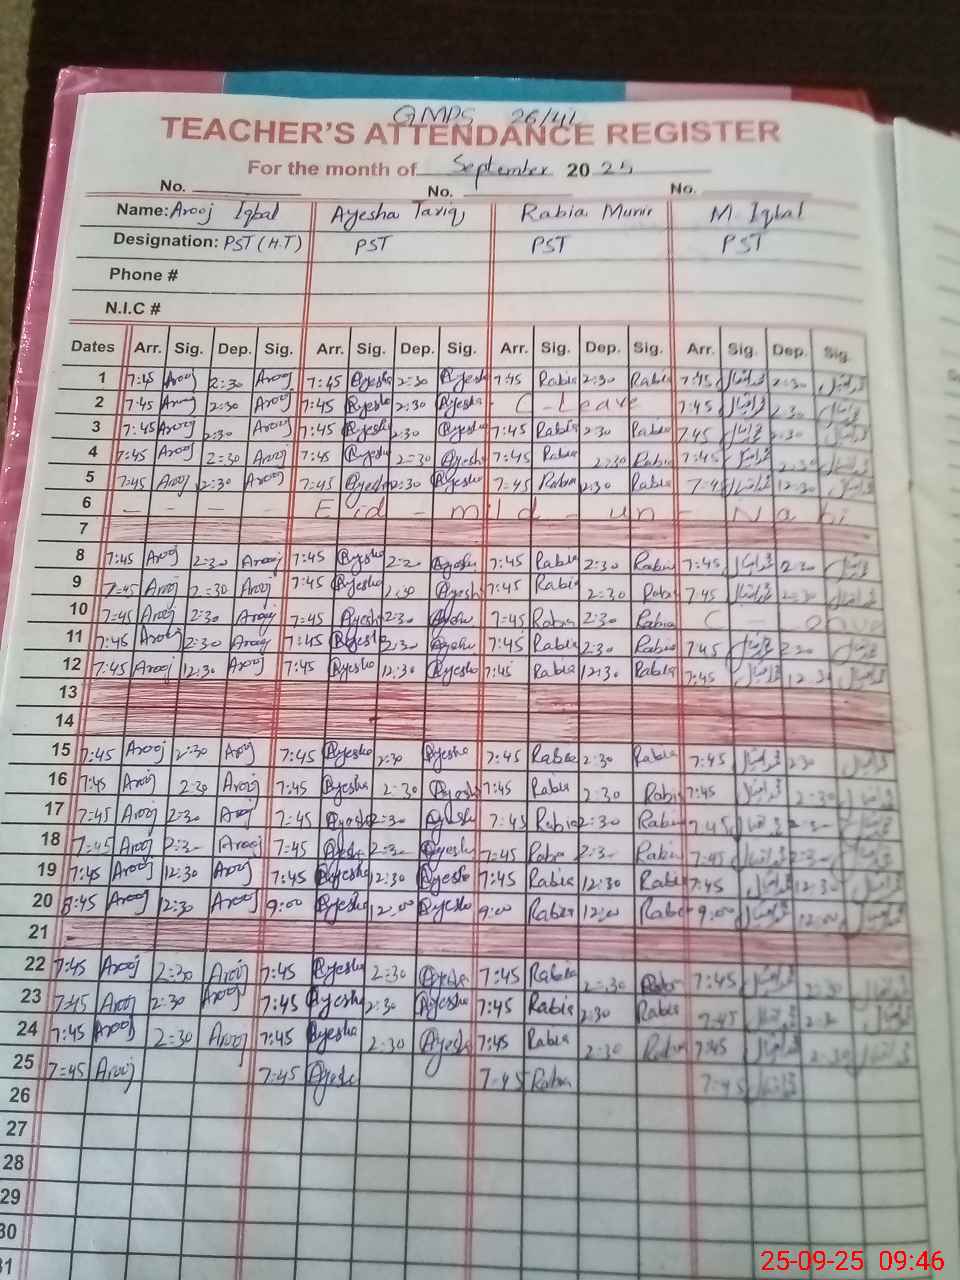 GMPS 26/4L
TEACHER'S ATTENDANCE REGISTER
For the month of September 2025
No. No. No.
Name: Arooj Iqbal Ayesha Tariq Rabia Munir M. Iqbal
Designation: PST (H.T) PST PST PST
Phone #
N.I.C #
Dates Arr. Sig. Dep. Sig. Arr. Sig. Dep. Sig. Arr. Sig. Dep. Sig. Arr. Sig. Dep. Sig.
1 7:45 Arooj 2:30 Arooj 7:45 Ayesha 2:30 Ayesha 7:45 Rabia 2:30 Rabia 7:45 2:30
2 7:45 Arooj 2:30 Arooj 7:45 Ayesha 2:30 Ayesha - C - Leave 7:45 2:30
3 7:45 Arooj 2:30 Arooj 7:45 Ayesha 2:30 Ayesha 7:45 Rabia 2:30 Rabia 7:45 2:30
4 7:45 Arooj 2:30 Arooj 7:45 Ayesha 2:30 Ayesha 7:45 Rabia 2:30 Rabia 7:45 2:30
5 7:45 Arooj 2:30 Arooj 7:45 Ayesha 2:30 Ayesha 7:45 Rabia 2:30 Rabia 7:45 12:30
6 - - - - Eid - mild - un - Nabi
7
8 7:45 Arooj 2:30 Arooj 7:45 Ayesha 2:30 Ayesha 7:45 Rabia 2:30 Rabia 7:45 2:30
9 7:45 Arooj 2:30 Arooj 7:45 Ayesha 2:30 Ayesha 7:45 Rabia 2:30 Rabia 7:45 2:30
10 7:45 Arooj 2:30 Arooj 7:45 Ayesha 2:30 Ayesha 7:45 Rabia 2:30 Rabia C -
11 7:45 Arooj 2:30 Arooj 7:45 Ayesha 2:30 Ayesha 7:45 Rabia 2:30 Rabia 7:45 2:30
12 7:45 Arooj 12:30 Arooj 7:45 Ayesha 12:30 Ayesha 7:45 Rabia 12:30 Rabia 7:45 12:30
13
14
15 7:45 Arooj 2:30 Arooj 7:45 Ayesha 2:30 Ayesha 7:45 Rabia 2:30 Rabia 7:45 2:30
16 7:45 Arooj 2:30 Arooj 7:45 Ayesha 2:30 Ayesha 7:45 Rabia 2:30 Rabia 7:45 2:30
17 7:45 Arooj 2:30 Arooj 7:45 Ayesha 2:30 Ayesha 7:45 Rabia 2:30 Rabia 7:45 2:30
18 7:45 Arooj 2:30 Arooj 7:45 Ayesha 2:30 Ayesha 7:45 Rabia 2:30 Rabia 7:45 2:30
19 7:45 Arooj 12:30 Arooj 7:45 Ayesha 12:30 Ayesha 7:45 Rabia 12:30 Rabia 7:45 12:30
20 8:45 Arooj 12:30 Arooj 9:00 Ayesha 12:00 Ayesha 9:00 Rabia 12:00 Rabia 9:00 12:00
21
22 7:45 Arooj 2:30 Arooj 7:45 Ayesha 2:30 Ayesha 7:45 Rabia 2:30 Rabia 7:45 2:30
23 7:45 Arooj 2:30 Arooj 7:45 Ayesha 2:30 Ayesha 7:45 Rabia 2:30 Rabia 7:45 2:30
24 7:45 Arooj 2:30 Arooj 7:45 Ayesha 2:30 Ayesha 7:45 Rabia 2:30 Rabia 7:45 2:30
25 7:45 Arooj 7:45 Ayesha 7:45 Rabia 7:45
26
27
28
29
30
31
25-09-25 09:46